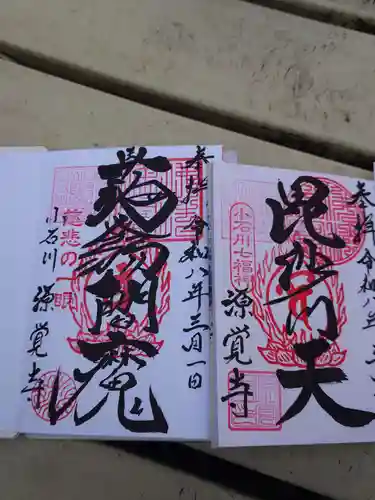 奉拝 令和八年三月一日
蒟蒻閻魔
慈悲の一眼
小石川 源覚寺
奉拝 令和八年三月一日
毘沙門天
小石川七福神
源覚寺